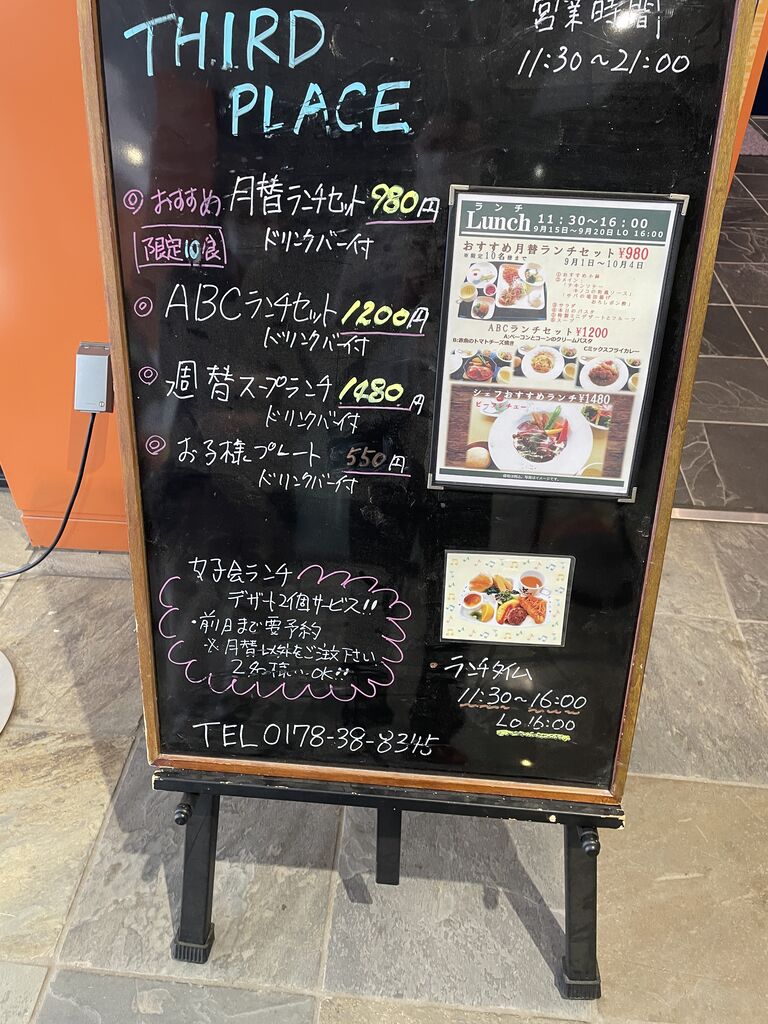 THIRD
PLACE
営業時間
11:30～21:00
◎おすすめ 月替ランチセット 980円
限定10食
ドリンクバー付
◎ ABCランチセット 1200円
ドリンクバー付
◎ 週替スープランチ 1480円
ドリンクバー付
◎ お子様プレート 550円
ドリンクバー付
女子会ランチ
デザート2個サービス!!
・前日まで要予約
※月替以外をご注文下さい
2名様〜OK!!
TEL 0178-38-8345
ランチ
Lunch 11:30～16:00
9月15日～9月20日 LO 16:00
おすすめ月替ランチセット ¥980
※限定10名様まで
9月1日～10月4日
①おすすめ小鉢
②メイン:
ABCランチセット ¥1200
A:ベーコンとコーンのクリームパスタ
B:赤魚のトマトチーズ焼き
Cミックスフライカレー
シェフおすすめランチ ¥1480
ビーフシチュー
・ランチタイム
11:30～16:00
LO 16:00